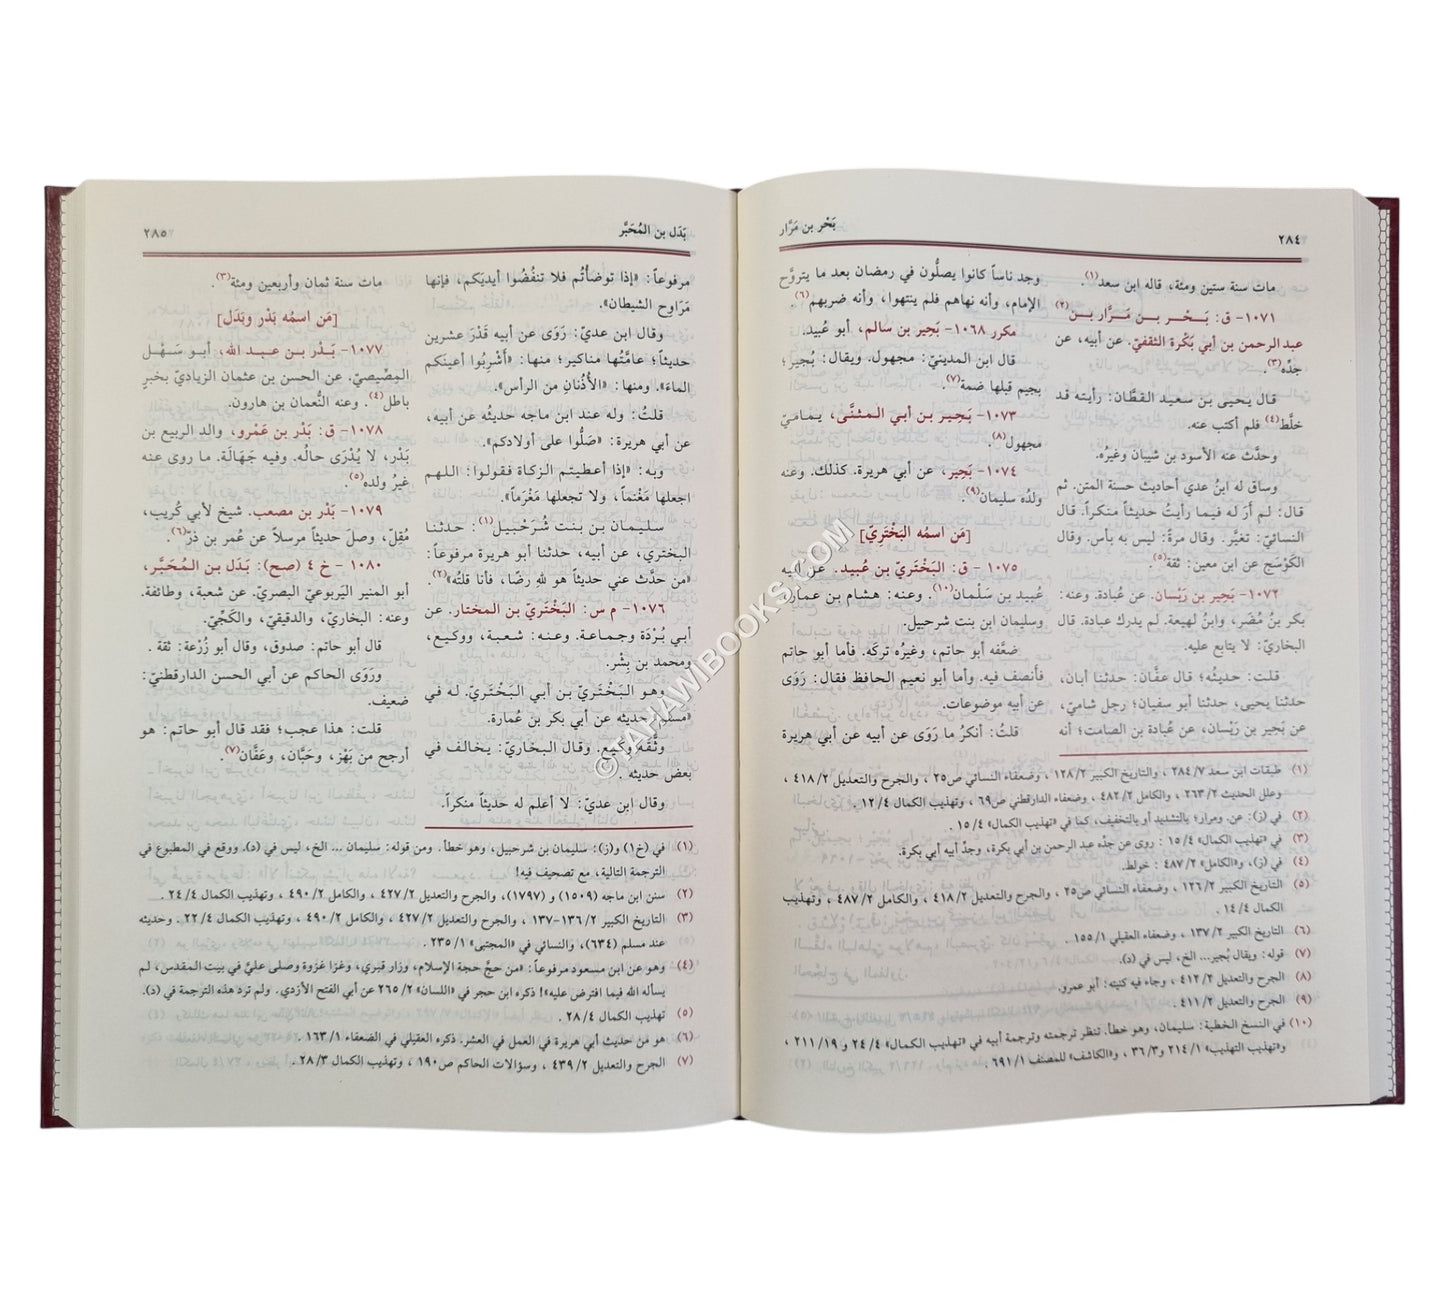 ٢٨٤
بَحْر بن مَرَّار
مات سنة ستين ومئة، قاله ابن سعد(١).
١٠٧١- ق: بَـحْـر بـن مَـرَّار بـن(٢)
عبد الرحمن بن أبي بَكْرة الثقفيّ. عن أبيه، عن
جدِّه(٣).
قال يَحيى بن سعيد القطَّان: رأيته قد
خلَّط(٤) فلم أكتب عنه.
وحدَّث عنه الأسود بن شيبان وغيرُه.
وساق له ابنُ عدي أحاديث حسنة المتن. ثم
قال: لم أرَ له فيما رأيتُ حديثاً منكراً. قال
النسائيّ: تغيَّر. وقال مرةً: ليس به بأس. وقال
الكَوْسَج عن ابن معين: ثقة(٥).
١٠٧٢- بَحِير بن رَيْسان. عن عُبادة. وعنه:
بكر بنُ مُضَر، وابنُ لهيعة. لم يدرك عبادة. قال
البخاريّ: لا يتابع عليه.
قلت: حديثُه؛ قال عفَّان: حدثنا أبان،
حدثنا يحيى، حدثنا أبو سفيان؛ رجل شاميّ،
عن بَحِير بن رَيْسان، عن عُبادة بن الصامت؛ أنه
وجد ناساً كانوا يصلُّون في رمضان بعد ما يتروَّح
الإمام، وأنه نهاهم فلم ينتهوا، وأنه ضربهم(٦).
مكرر ١٠٦٨- بَحِير بن سالم، أبو عُبيد.
قال ابن المدينيّ: مجهول. ويقال: بُجير؛
بجيم قبلها ضمة(٧).
١٠٧٣- بَحِير بن أبي المثنَّى، يمَاميّ
مجهول(٨).
١٠٧٤- بَحِير، عن أبي هريرة. كذلك. وعنه
ولدُه سليمان(٩).
[مَن اسمُه البَخْتَرِيّ]
١٠٧٥- ق: البَخْتَريّ بن عُبيد. عن أبيه
عُبيد بن سَلْمان(١٠). وعنه: هشام بن عمار،
وسليمان ابن بنت شرحبيل.
ضعَّفه أبو حاتم، وغيرُه تركَه. فأما أبو حاتم
فأنصف فيه. وأما أبو نعيم الحافظ فقال: رَوَى
عن أبيه موضوعات.
قلتُ: أنكرُ ما رَوَى عن أبيه عن أبي هريرة
(١) طبقات ابن سعد ٢٨٤/٧ ، والتاريخ الكبير ١٢٨/٢ ، وضعفاء النسائي ص٢٥ ، والجرح والتعديل ٤١٨/٢ ،
وعلل الحديث ٢٦٣/٢ ، والكامل ٤٨٢/٢ ، وضعفاء الدارقطني ص٦٩ ، وتهذيب الكمال ١٢/٤ .
(٢) في (ز): عن. ومرار؛ بالتشديد أو بالتخفيف، كما في «تهذيب الكمال» ١٥/٤ .
(٣) في «تهذيب الكمال» ١٥/٤ : روى عن جدِّه عبد الرحمن بن أبي بكرة، وجدِّ أبيه أبي بكرة.
(٤) في (ز)، و«الكامل» ٤٨٧/٢ : خولط.
(٥) التاريخ الكبير ١٢٦/٢ ، وضعفاء النسائي ص٢٥ ، والجرح والتعديل ٤١٨/٢ ، والكامل ٤٨٧/٢ ، وتهذيب
الكمال ١٤/٤ .
(٦) التاريخ الكبير ١٣٧/٢ ، وضعفاء العقيلي ١٥٥/١ .
(٧) قوله: ويقال بُجير... الخ، ليس في (د).
(٨) الجرح والتعديل ٤١٢/٢ ، وجاء فيه كنيته: أبو عمرو.
(٩) الجرح والتعديل ٤١١/٢ .
(١٠) في النسخ الخطية: سليمان، وهو خطأ. تنظر ترجمته وترجمة أبيه في «تهذيب الكمال» ٢٤/٤ و ٢١١/١٩ ،
و«تهذيب التهذيب» ٢١٤/١ و٣٦/٣ ، و«الكاشف» للمصنف ٦٩١/١ .
بَدَل بن المُحَبَّر
٢٨٥
مرفوعاً: «إذا توضأتُم فلا تنفُضُوا أيديَكم، فإنها
مَرَاوح الشيطان».
وقال ابن عديّ: رَوَى عن أبيه قَدْرَ عشرين
حديثاً؛ عامَّتُها مناكير؛ منها: «أَشْرِبُوا أعينَكم
الماءَ». ومنها: «الأُذُنانِ من الرأس».
قلتُ: وله عند ابن ماجه حديثُه عن أبيه،
عن أبي هريرة: «صَلُّوا على أولادكم».
وبه: «إذا أعطيتم الزكاة فقولوا: اللهم
اجعلها مَغْنَماً، ولا تجعلها مَغْرَماً».
سليمان بن بنت شُرَحْبيل(١): حدثنا
البختري، عن أبيه، حدثنا أبو هريرة مرفوعاً:
«من حدَّث عني حديثاً هو للهِ رضًا، فأنا قلتُه»(٢).
١٠٧٦- م س: البَخْتَريّ بن المختار. عن
أبي بُرْدَة وجماعة. وعنه: شعبة، ووكيع،
ومحمد بن بِشْر.
وهو البَخْتَريّ بن أبي البَخْتَريّ. له في
«مسلم» حديثه عن أبي بكر بن عُمارة.
وثَّقه وكيع. وقال البخاريّ: يخالف في
بعض حديثه .
وقال ابن عديّ: لا أعلم له حديثاً منكراً.
مات سنة ثمان وأربعين ومئة(٣).
[مَن اسمُه بَدْر وبَدَل]
١٠٧٧- بَدْر بن عبد الله، أبو سَهْل
المِصِّيصيّ. عن الحسن بن عثمان الزياديّ بخبرٍ
باطل(٤). وعنه النُّعمان بن هارون.
١٠٧٨- ق: بَدْر بن عَمْرو، والد الربيع بن
بَدْر، لا يُدْرَى حالُه. وفيه جَهَالة. ما روى عنه
غيرُ ولده(٥).
١٠٧٩- بَدْر بن مصعب. شيخ لأبي كُريب،
مُقِلّ، وصلَ حديثاً مرسلاً عن عُمر بن ذَرّ(٦).
١٠٨٠ - خ ٤ (صح): بَدَل بن المُحَبَّر،
أبو المنير اليَربوعيّ البصريّ. عن شعبة، وطائفة.
وعنه: البخاريّ، والدقيقيّ، والكَجِّيّ.
قال أبو حاتم: صدوق، وقال أبو زُرْعة: ثقة .
ورَوَى الحاكم عن أبي الحسن الدارقطنيّ:
ضعيف.
قلت: هذا عجب؛ فقد قال أبو حاتم: هو
أرجح من بَهْز، وحَبَّان، وعَفَّان(٧).
(١) في (خ١) و(ز): سليمان بن شرحبيل، وهو خطأ. ومن قوله: سليمان ... الخ، ليس في (د). ووقع في المطبوع في
الترجمة التالية، مع تصحيف فيه!
(٢) سنن ابن ماجه (١٥٠٩) و (١٧٩٧)، والجرح والتعديل ٤٢٧/٢ ، والكامل ٤٩٠/٢ ، وتهذيب الكمال ٢٤/٤ .
(٣) التاريخ الكبير ١٣٦/٢-١٣٧ ، والجرح والتعديل ٤٢٧/٢ ، والكامل ٤٩٠/٢ ، وتهذيب الكمال ٢٢/٤ . وحديثه
عند مسلم (٦٣٤)، والنسائي في «المجتبى» ٢٣٥/١ .
(٤) وهو عن ابن مسعود مرفوعاً: «من حجَّ حجة الإسلام، وزار قبري، وغزا غزوة وصلى عليَّ في بيت المقدس، لم
يسأله الله فيما افترض عليه»! ذكره ابن حجر في «اللسان» ٢٦٥/٢ عن أبي الفتح الأزدي. ولم ترد هذه الترجمة في (د).
(٥) تهذيب الكمال ٢٨/٤ .
(٦) هو من حديث أبي هريرة في العمل في العشر. ذكره العقيلي في الضعفاء ١٦٣/١ .
(٧) الجرح والتعديل ٤٣٩/٢ ، وسؤالات الحاكم ص١٩٠ ، وتهذيب الكمال ٢٨/٣ .
©TAHAWIBOOKS.COM